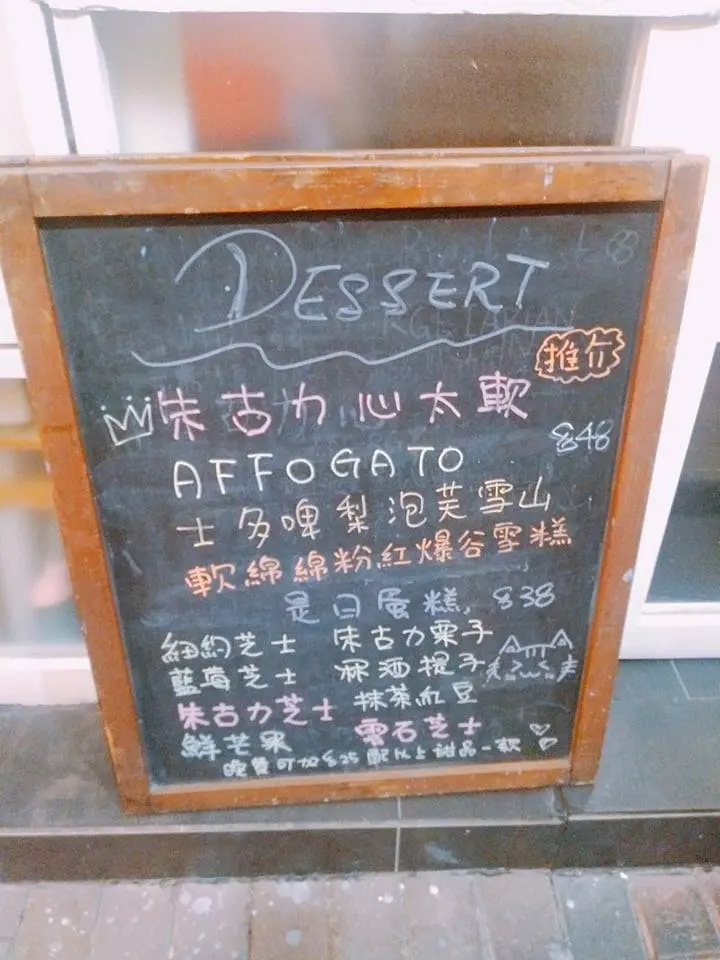 DESSERT
推介
朱古力心太軟
$48
AFFOGATO
士多啤梨泡芙雪山
軟綿綿粉紅爆谷雪糕
是日蛋糕, $38
紐約芝士 朱古力栗子
藍莓芝士 冧酒提子
朱古力芝士 抹茶紅豆
鮮芒果 雲石芝士
晚餐可加$25配以上甜品一款